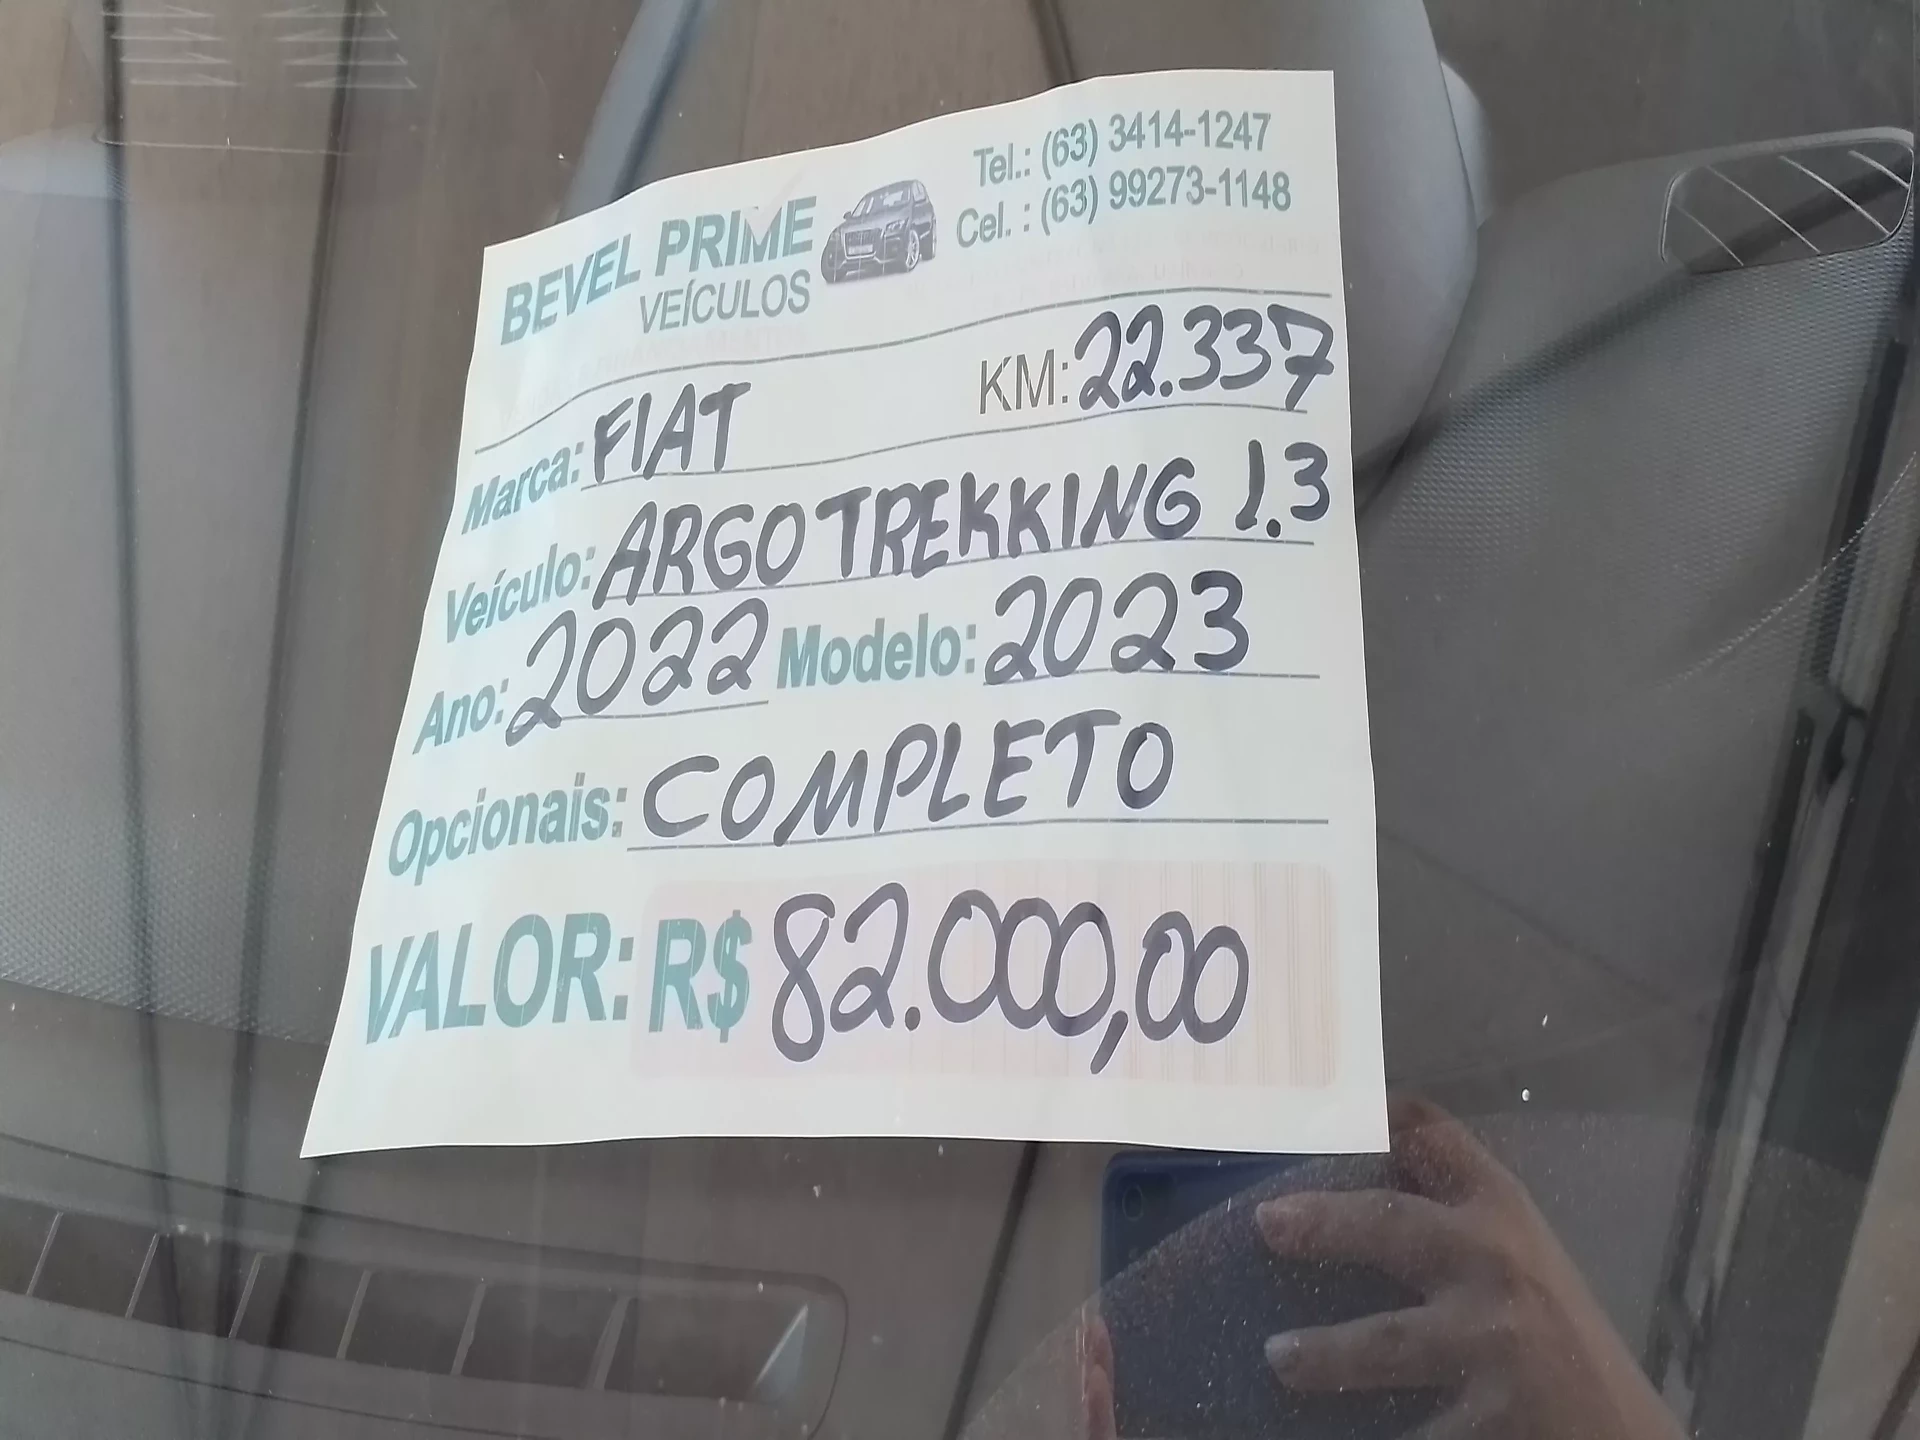 BEVEL PRIME
VEÍCULOS
Tel.: (63) 3414-1247
Cel. : (63) 99273-1148
Marca: FIAT KM: 22.337
Veículo: ARGO TREKKING 1.3
Ano: 2022 Modelo: 2023
Opcionais: COMPLETO
VALOR: R$ 82.000,00